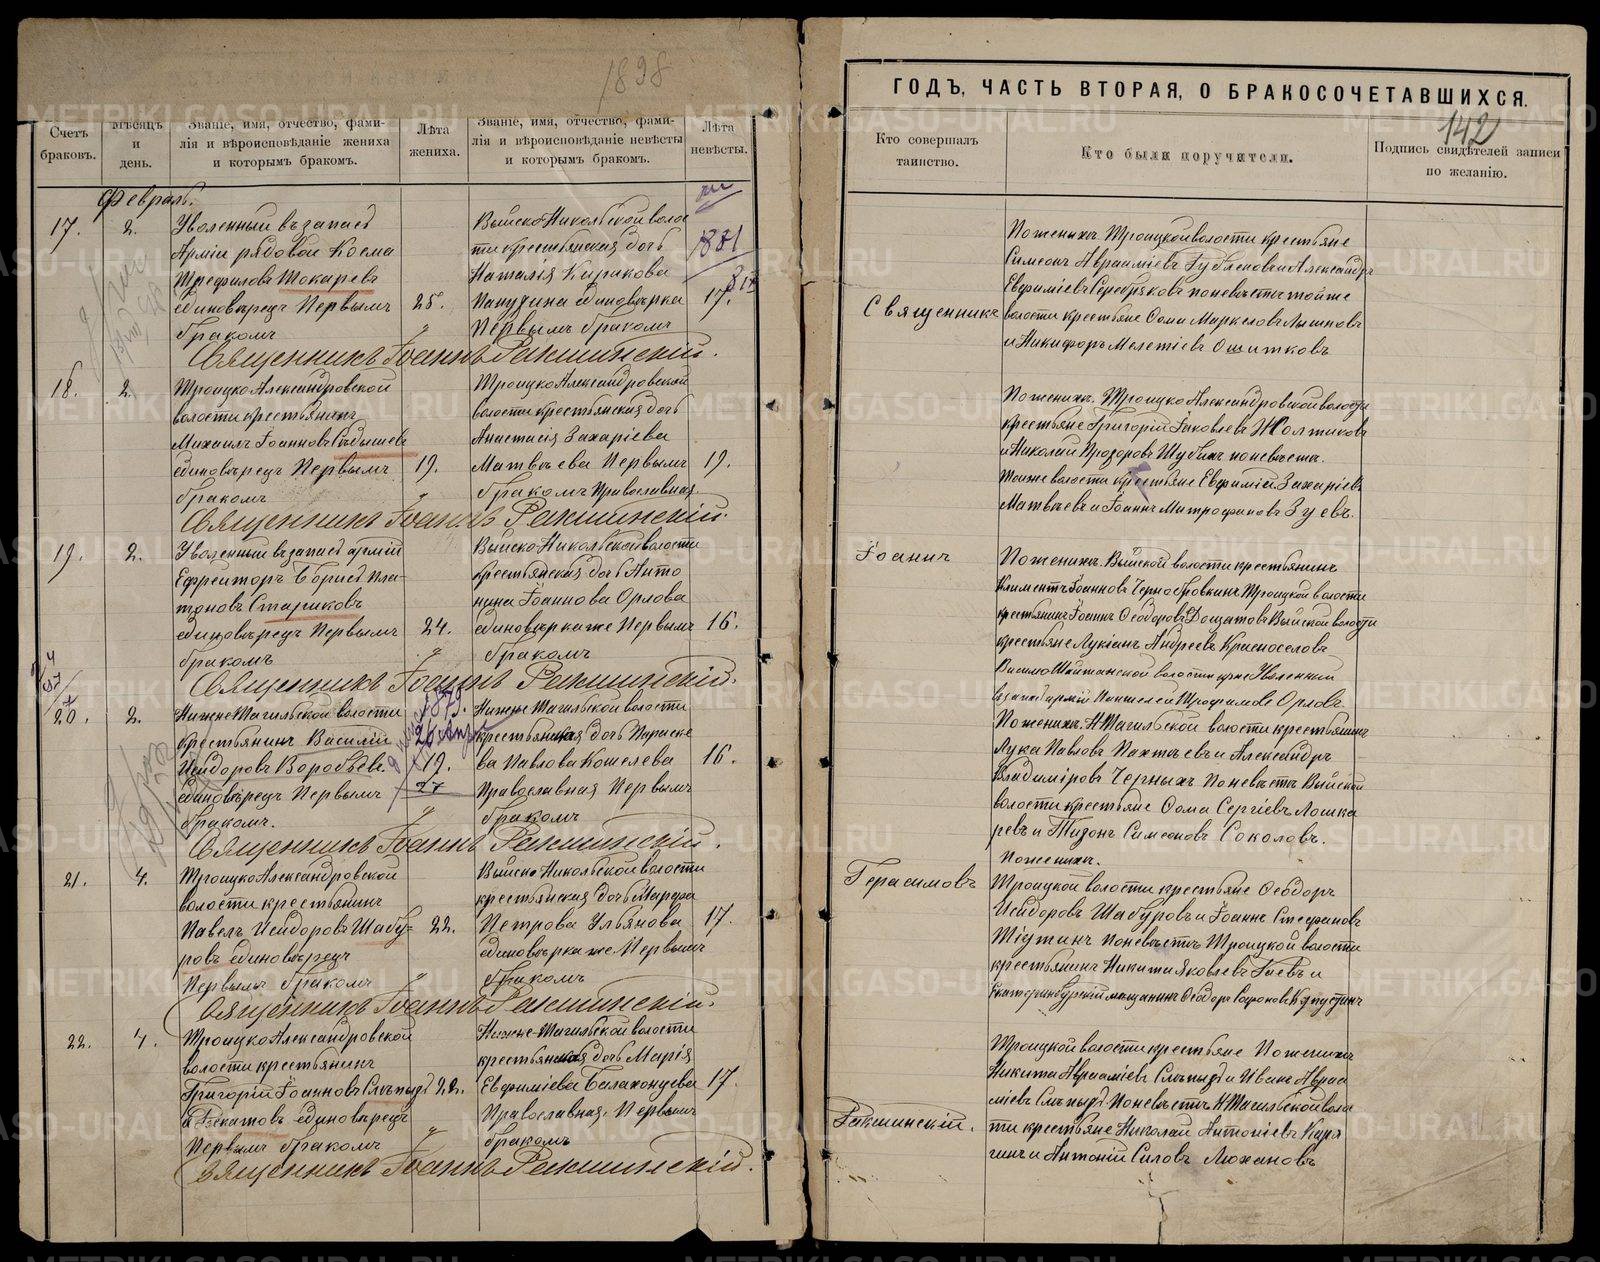 1898
ГОДЪ, ЧАСТЬ ВТОРАЯ, О БРАКОСОЧЕТАВШИХСЯ.
142
Счетъ браковъ.
Мѣсяцъ и день.
Званіе, имя, отчество, фами-
лія и вѣроисповѣданіе жениха
и которымъ бракомъ.
Лѣта жениха.
Званіе, имя, отчество, фами-
лія и вѣроисповѣданіе невѣсты
и которымъ бракомъ.
Лѣта невѣсты.
Кто совершалъ таинство.
Кто были поручители.
Подпись свидѣтелей записи
по желанію.
Февраль.
17. 2.
Уволенный въ запасъ
Арміи рядовой Косма
Трефиловъ Токаревъ
единовѣрецъ Первымъ
бракомъ
25.
Выйско-Никольской волос
ти крестьянская дочь
Наталія Кирикова
единовѣрка
Первымъ бракомъ
17.
1881
Священникъ Іоаннъ Ракшинскій.
18. 2.
Троицко Александровской
волости крестьянинъ
Михаилъ Іоанновъ
единовѣрецъ Первымъ
бракомъ
19.
Троицко Александровской
волости крестьянская дочь
Анастасія Захаріева
Матвѣева Первымъ
бракомъ Православная.
19.
Священникъ Іоаннъ Ракшинскій.
19. 2.
Уволенный въ запасъ арміи
Ефрейторъ Борисъ Пла-
тоновъ Стариковъ
единовѣрецъ Первымъ
бракомъ
24.
Выйско-Никольской волости
крестьянская дочь Анто
нина Іоаннова Орлова
единовѣрка же Первымъ
бракомъ
16.
Священникъ Іоаннъ Ракшинскій.
20. 2.
Нижне Тагильской волости
крестьянинъ Василій
Исидоровъ Воробьевъ
единовѣрецъ Первымъ
бракомъ.
1879.
19.
Нижне Тагильской волости
крестьянская дочь Параске
ва Павлова Кошелева
Православная Первымъ
бракомъ
16.
Священникъ Іоаннъ Ракшинскій.
21. 4.
Троицко Александровской
волости крестьянинъ
Павелъ Исидоровъ Шабу=
ровъ единовѣрецъ
Первымъ бракомъ
22.
Выйско Никольской волости
крестьянская дочь Марфа
Петрова Ульянова
единовѣрка же. Первымъ
бракомъ
17.
Священникъ Іоаннъ Ракшинскій.
22. 4.
Троицко Александровской
волости крестьянинъ
Григорій Іоанновъ Слѣпыхъ
единовѣрецъ
Первымъ бракомъ
22.
Нижне-Тагильской волости
крестьянская дочь Марія
Евфиміева Балахонцева
Православная, Первымъ
бракомъ
17.
Священникъ Іоаннъ Ракшинскій.
Священникъ
Іоаннъ
Герасимовъ
Ракшинскій.
По женихѣ Троицкой волости крестьяне
Симеонъ Авраміевъ и Александръ
Евфиміевъ Серебряковъ по невѣстѣ тойже
волости крестьяне Ѳома Маркеловъ
и Никифоръ Мелетіевъ Ошитковъ
По женихѣ. Троицко Александровской волости
крестьяне Григорій Яковлевъ Желтиковъ
и Николай Прохоровъ Шубинъ по невѣстѣ.
Тойже волости крестьяне Евфимій Захаріевъ
Матвѣевъ и Іоаннъ Митрофановъ Зуевъ.
По женихѣ. Выйской волости крестьянинъ
Климентъ Іоанновъ Чернобровкинъ Троицкой волости
крестьянинъ Іоаннъ Ѳеодоровъ Дощатовъ Выйской волости
крестьяне Лукіанъ Андреевъ Красноселовъ
Висимо Шайтанской волости Уволенный
въ запасъ арміи Пантелей Трофимовъ Орловъ.
По женихѣ. Н Тагильской волости крестьянинъ
Лука Павловъ Пахтѣевъ и Александръ
Владиміровъ Черныхъ По невѣстѣ Выйской
волости крестьяне Ѳома Сергіевъ Лошка
ревъ и Тихонъ Симеоновъ Соколовъ.
По женихѣ.
Троицкой волости крестьяне Ѳеодоръ
Исидоровъ Шабуровъ и Іоаннъ Стефановъ
по невѣстѣ Троицкой волости
крестьянинъ Никита Яковлевъ Гаевъ и
Екатеринбургскій мѣщанинъ Ѳеодоръ Софоновъ Капустинъ
Троицкой волости крестьяне По женихѣ
Никита Авраміевъ Слѣпыхъ и Иванъ Авраа
міевъ Слѣпыхъ. По невѣстѣ Н Тагильской воло
сти крестьяне Николай Антоніевъ Каря
гинъ и Антоній Силовъ Лохановъ
METRIKI.GASO-URAL.RU